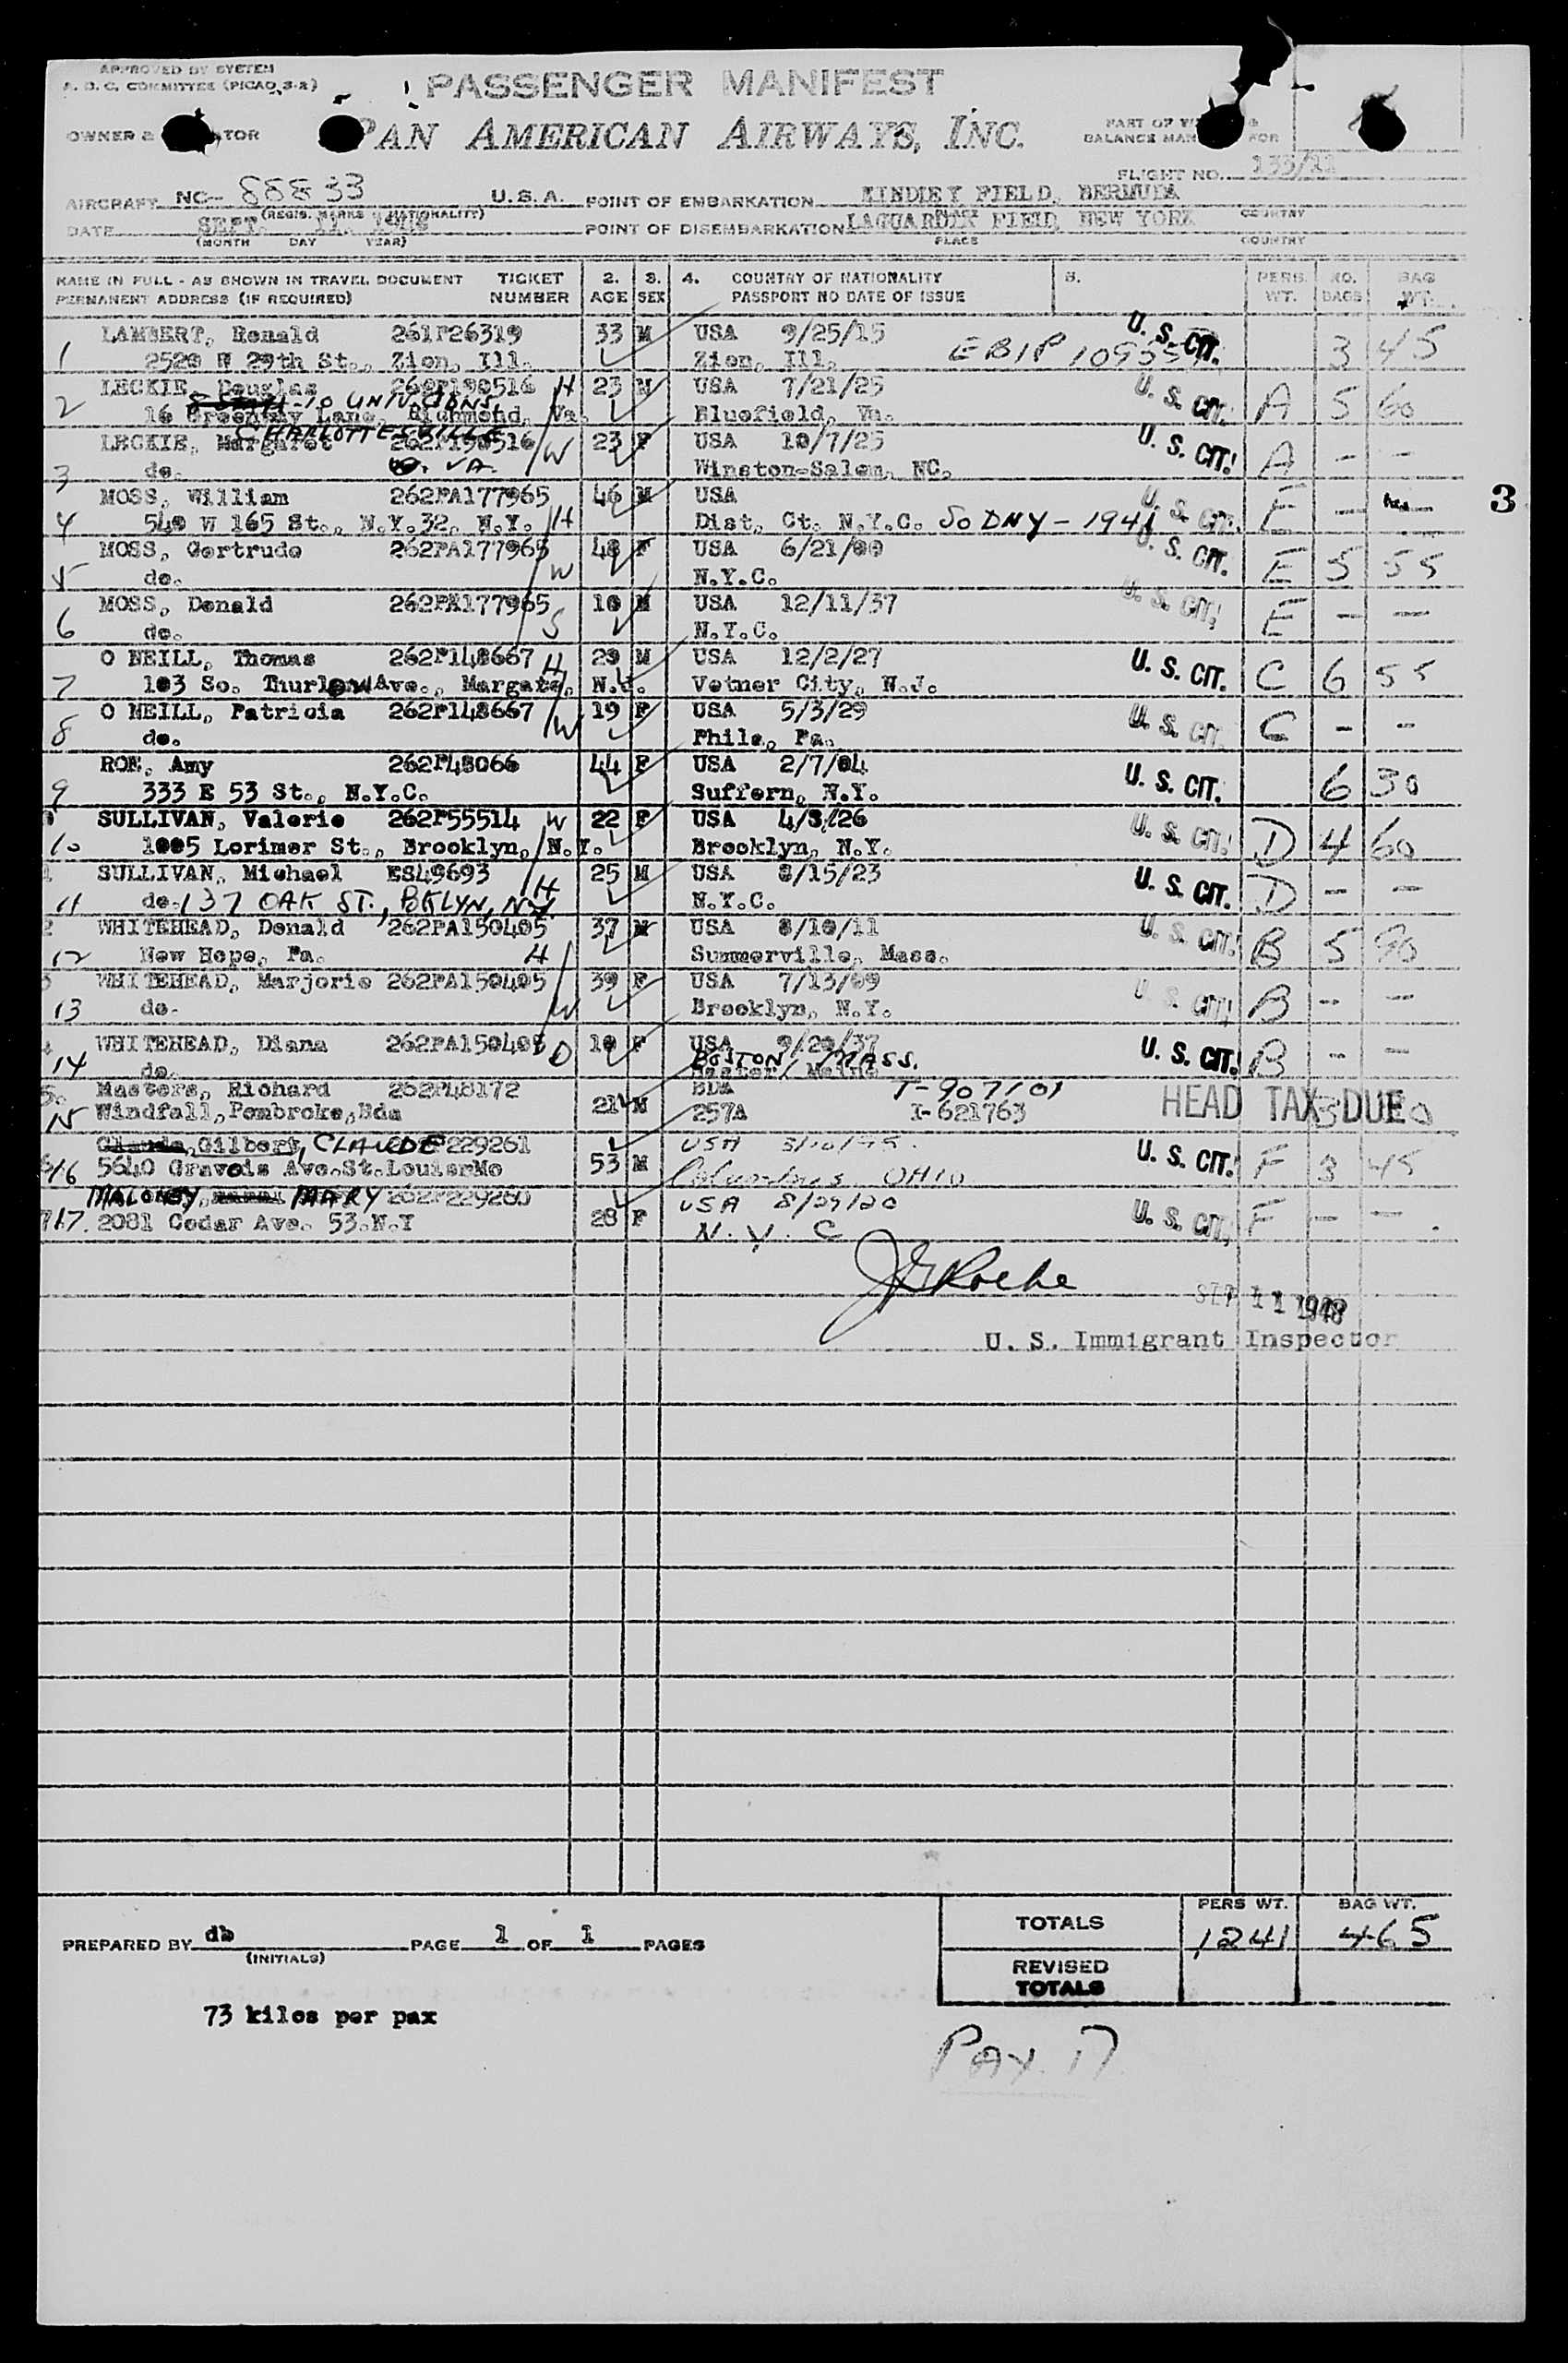 APPROVED BY SYSTEM
A. O. C. COMMITTEE (PICAO 3-2)
PASSENGER MANIFEST
OWNER & TOR
PAN AMERICAN AIRWAYS, INC.
PART OF
BALANCE MAN FOR
FLIGHT NO. 135/11
AIRCRAFT NC- 88833 U.S.A. POINT OF EMBARKATION KINDLEY FIELD, BERMUDA
(REGIS. MARKS & NATIONALITY) PLACE COUNTRY
DATE SEPT. 11, 1948 POINT OF DISEMBARKATION LAGUARDIA FIELD, NEW YORK
(MONTH DAY YEAR) PLACE COUNTRY
NAME IN FULL - AS SHOWN IN TRAVEL DOCUMENT TICKET 2. 3. 4. COUNTRY OF NATIONALITY 5. PERS. NO. BAG
PERMANENT ADDRESS (IF REQUIRED) NUMBER AGE SEX PASSPORT NO DATE OF ISSUE WT. BAGS WT.
LAMBERT, Ronald 261P26319 33 M USA 9/25/15 U. S. CIT.
1 2520 W 29th St., Zion, Ill. Zion, Ill. 3 45
LECKIE, Douglas 262P190516 H 23 M USA 7/21/25 U. S. CIT. A 5 60
10 UNIV. GDNS,
2 16 Greenway Lane, Richmond, Va. Bluefield, Va.
CHARLOTTESVILLE
LECKIE, Margaret 262P190516 W 23 F USA 10/7/25 U. S. CIT. A - -
3 do. VA. Winston-Salem, NC.
MOSS, William 262PA177965 46 M USA U. S. CIT. E - -
4 540 W 165 St., N.Y.32, N.Y. H Dist. Ct. N.Y.C. So DNY - 1941
3
MOSS, Gertrude 262PA177965 48 F USA 6/21/00 U. S. CIT. E 5 55
5 do. W N.Y.C.
MOSS, Donald 262PA177965 10 M USA 12/11/37 U. S. CIT. E - -
6 do. S N.Y.C.
O NEILL, Thomas 262P148667 H 20 M USA 12/2/27 U. S. CIT. C 6 55
7 103 So. Thurlow Ave., Margate, N.J. Vetner City, N.J.
O NEILL, Patricia 262P148667 W 19 F USA 5/3/29 U. S. CIT. C - -
8 do. Phila, Pa.
ROE, Amy 262P48066 44 F USA 2/7/04 U. S. CIT. 6 30
9 333 E 53 St., N.Y.C. Suffern, N.Y.
SULLIVAN, Valerie 262P55514 W 22 F USA 4/3/26 U. S. CIT. D 4 60
10 1005 Lorimer St., Brooklyn, N.Y. Brooklyn, N.Y.
SULLIVAN, Michael ES49693 H 25 M USA 8/15/23 U. S. CIT. D - -
11 do. 137 OAK ST., BKLYN, NY N.Y.C.
WHITEHEAD, Donald 262PA150405 37 M USA 8/10/11 U. S. CIT. B 5 90
12 New Hope, Pa. H Summerville, Mass.
WHITEHEAD, Marjorie 262PA150405 39 F USA 7/13/09 U. S. CIT. B - -
13 do. W Brooklyn, N.Y.
WHITEHEAD, Diana 262PA150405 D 10 F USA 9/20/37 U. S. CIT. B - -
14 do. BOSTON, MASS.
Masters, Richard 262P48172 21 M BDA T-907101 HEAD TAX DUE
15 Windfall, Pembroke, Bda 257A I-621763
Gilbert, CLAUDE 229261 53 M USA U. S. CIT. F 3 45
16 5640 Gravois Ave. St. Louis Mo Columbus OHIO
MALONEY, MARY 262P229260 28 F USA 8/29/20 U. S. CIT. F - -
17. 2081 Cedar Ave. 53.N.Y N. Y. C
J Roche
SEP 11 1948
U. S. Immigrant Inspector
PREPARED BY db PAGE 1 OF 1 PAGES
(INITIALS)
TOTALS PERS WT. 1241 BAG WT. 465
REVISED
TOTALS
73 kilos per pax
PAX 17